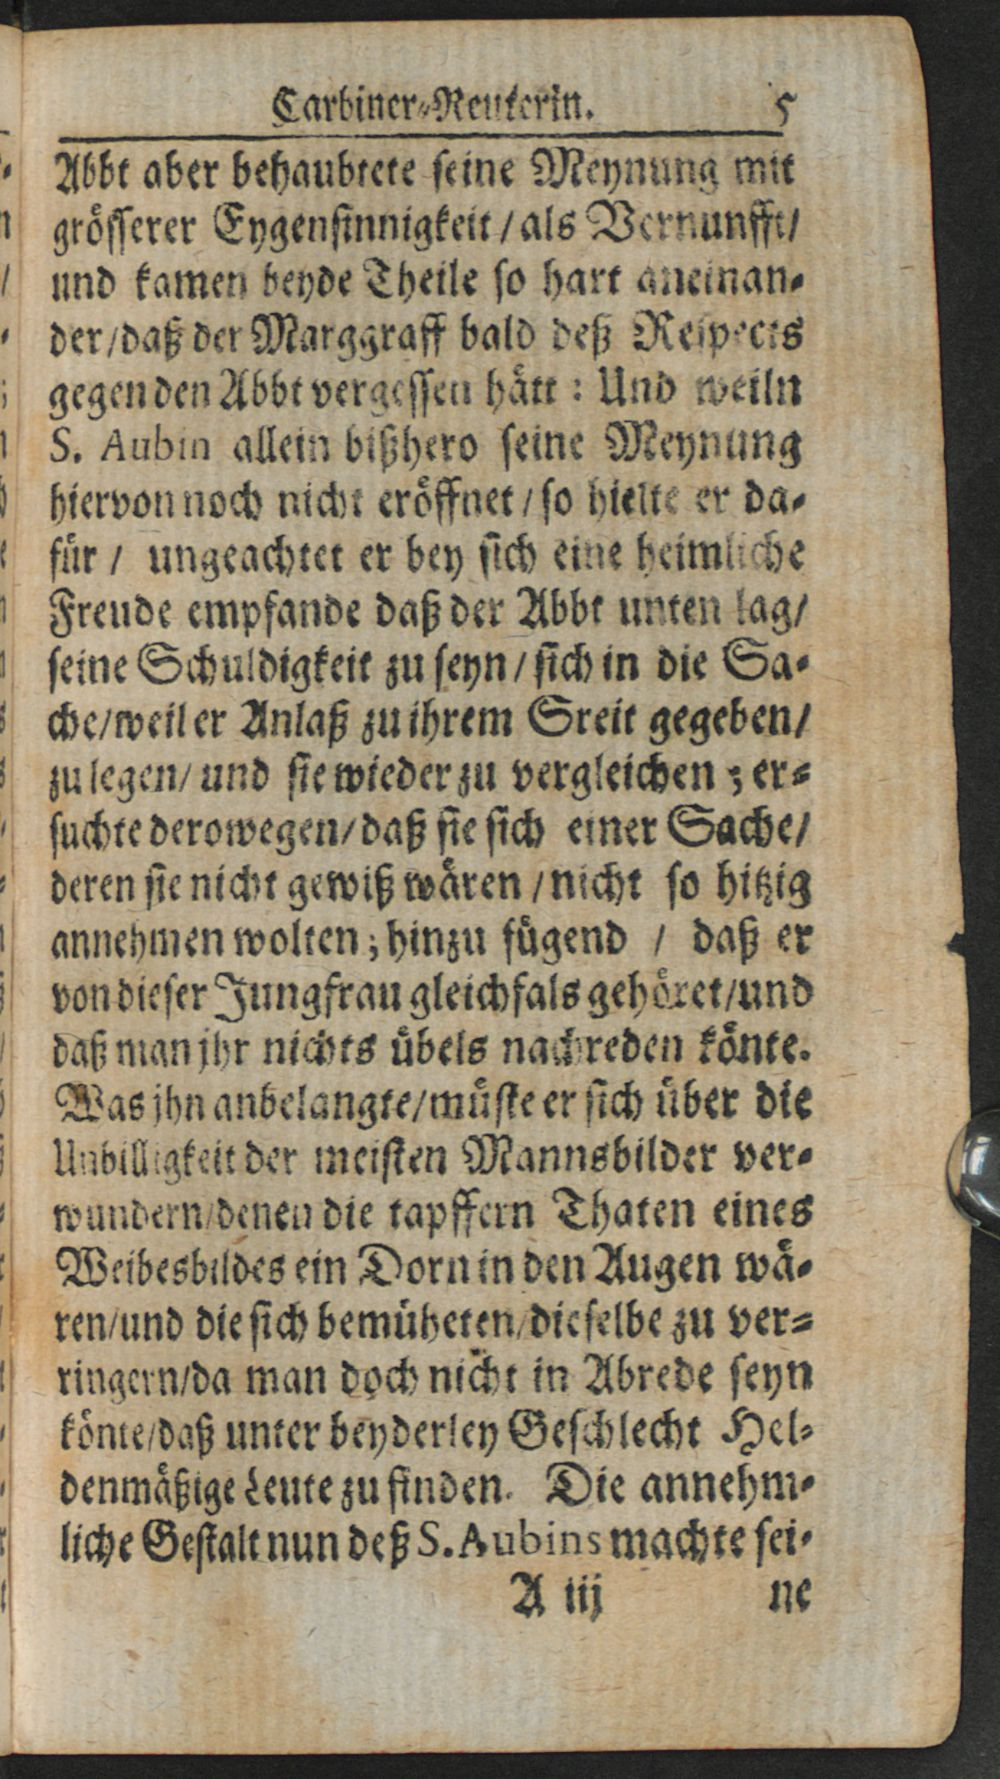 Carbiner-Reuterin. 5
Abbt aber behaubtete seine Meynung mit
grösserer Eygensinnigkeit / als Vernunfft /
und kamen beyde Theile so hart aneinan-
der / daß der Marggraff bald deß Respects
gegen den Abbt vergessen hätt : Und weiln
S. Aubin allein bißhero seine Meynung
hiervon noch nicht eröffnet / so hielte er da-
für / ungeachtet er bey sich eine heimliche
Freude empfande daß der Abbt unten lag /
seine Schuldigkeit zu seyn / sich in die Sa-
che / weil er Anlaß zu ihrem Sreit gegeben /
zu legen / und sie wieder zu vergleichen ; er-
suchte derowegen / daß sie sich einer Sache /
deren sie nicht gewiß wären / nicht so hitzig
annehmen wolten ; hinzu fügend / daß er
von dieser Jungfrau gleichfals gehöret / und
daß man jhr nichts übels nachreden könte.
Was jhn anbelangte / müste er sich über die
Unbilligkeit der meisten Mannsbilder ver-
wundern / denen die tapffern Thaten eines
Weibesbildes ein Dorn in den Augen wä-
ren / und die sich bemüheten / dieselbe zu ver-
ringern / da man doch nicht in Abrede seyn
könte / daß unter beyderley Geschlecht Hel-
denmäßige Leute zu finden. Die annehm-
liche Gestalt nun deß S. Aubins machte sei-
A iij ne